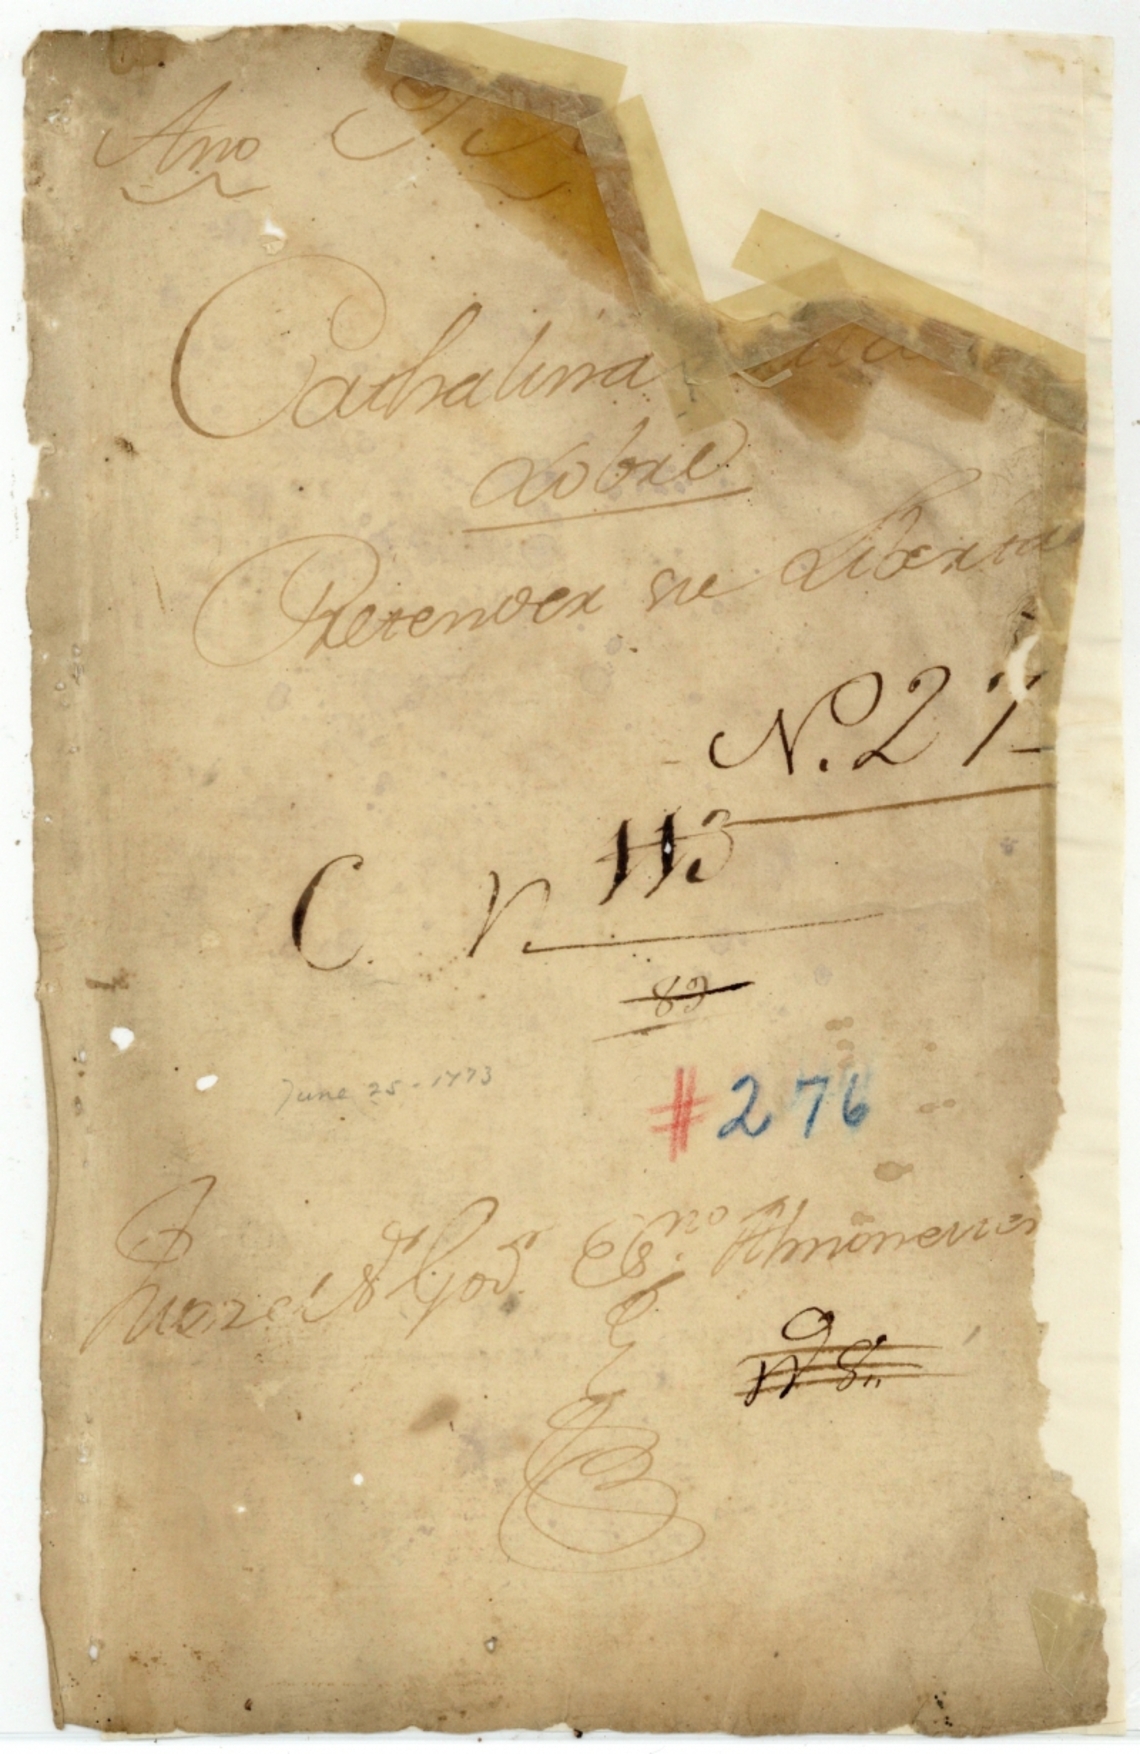 Ano
Cathalina
sobre
Pretender su Libertad
N.º 27
C. N. 113
89
June 25 - 1773
#276
Juez el S.or Gov.or Es.no Almonester
N.º 8